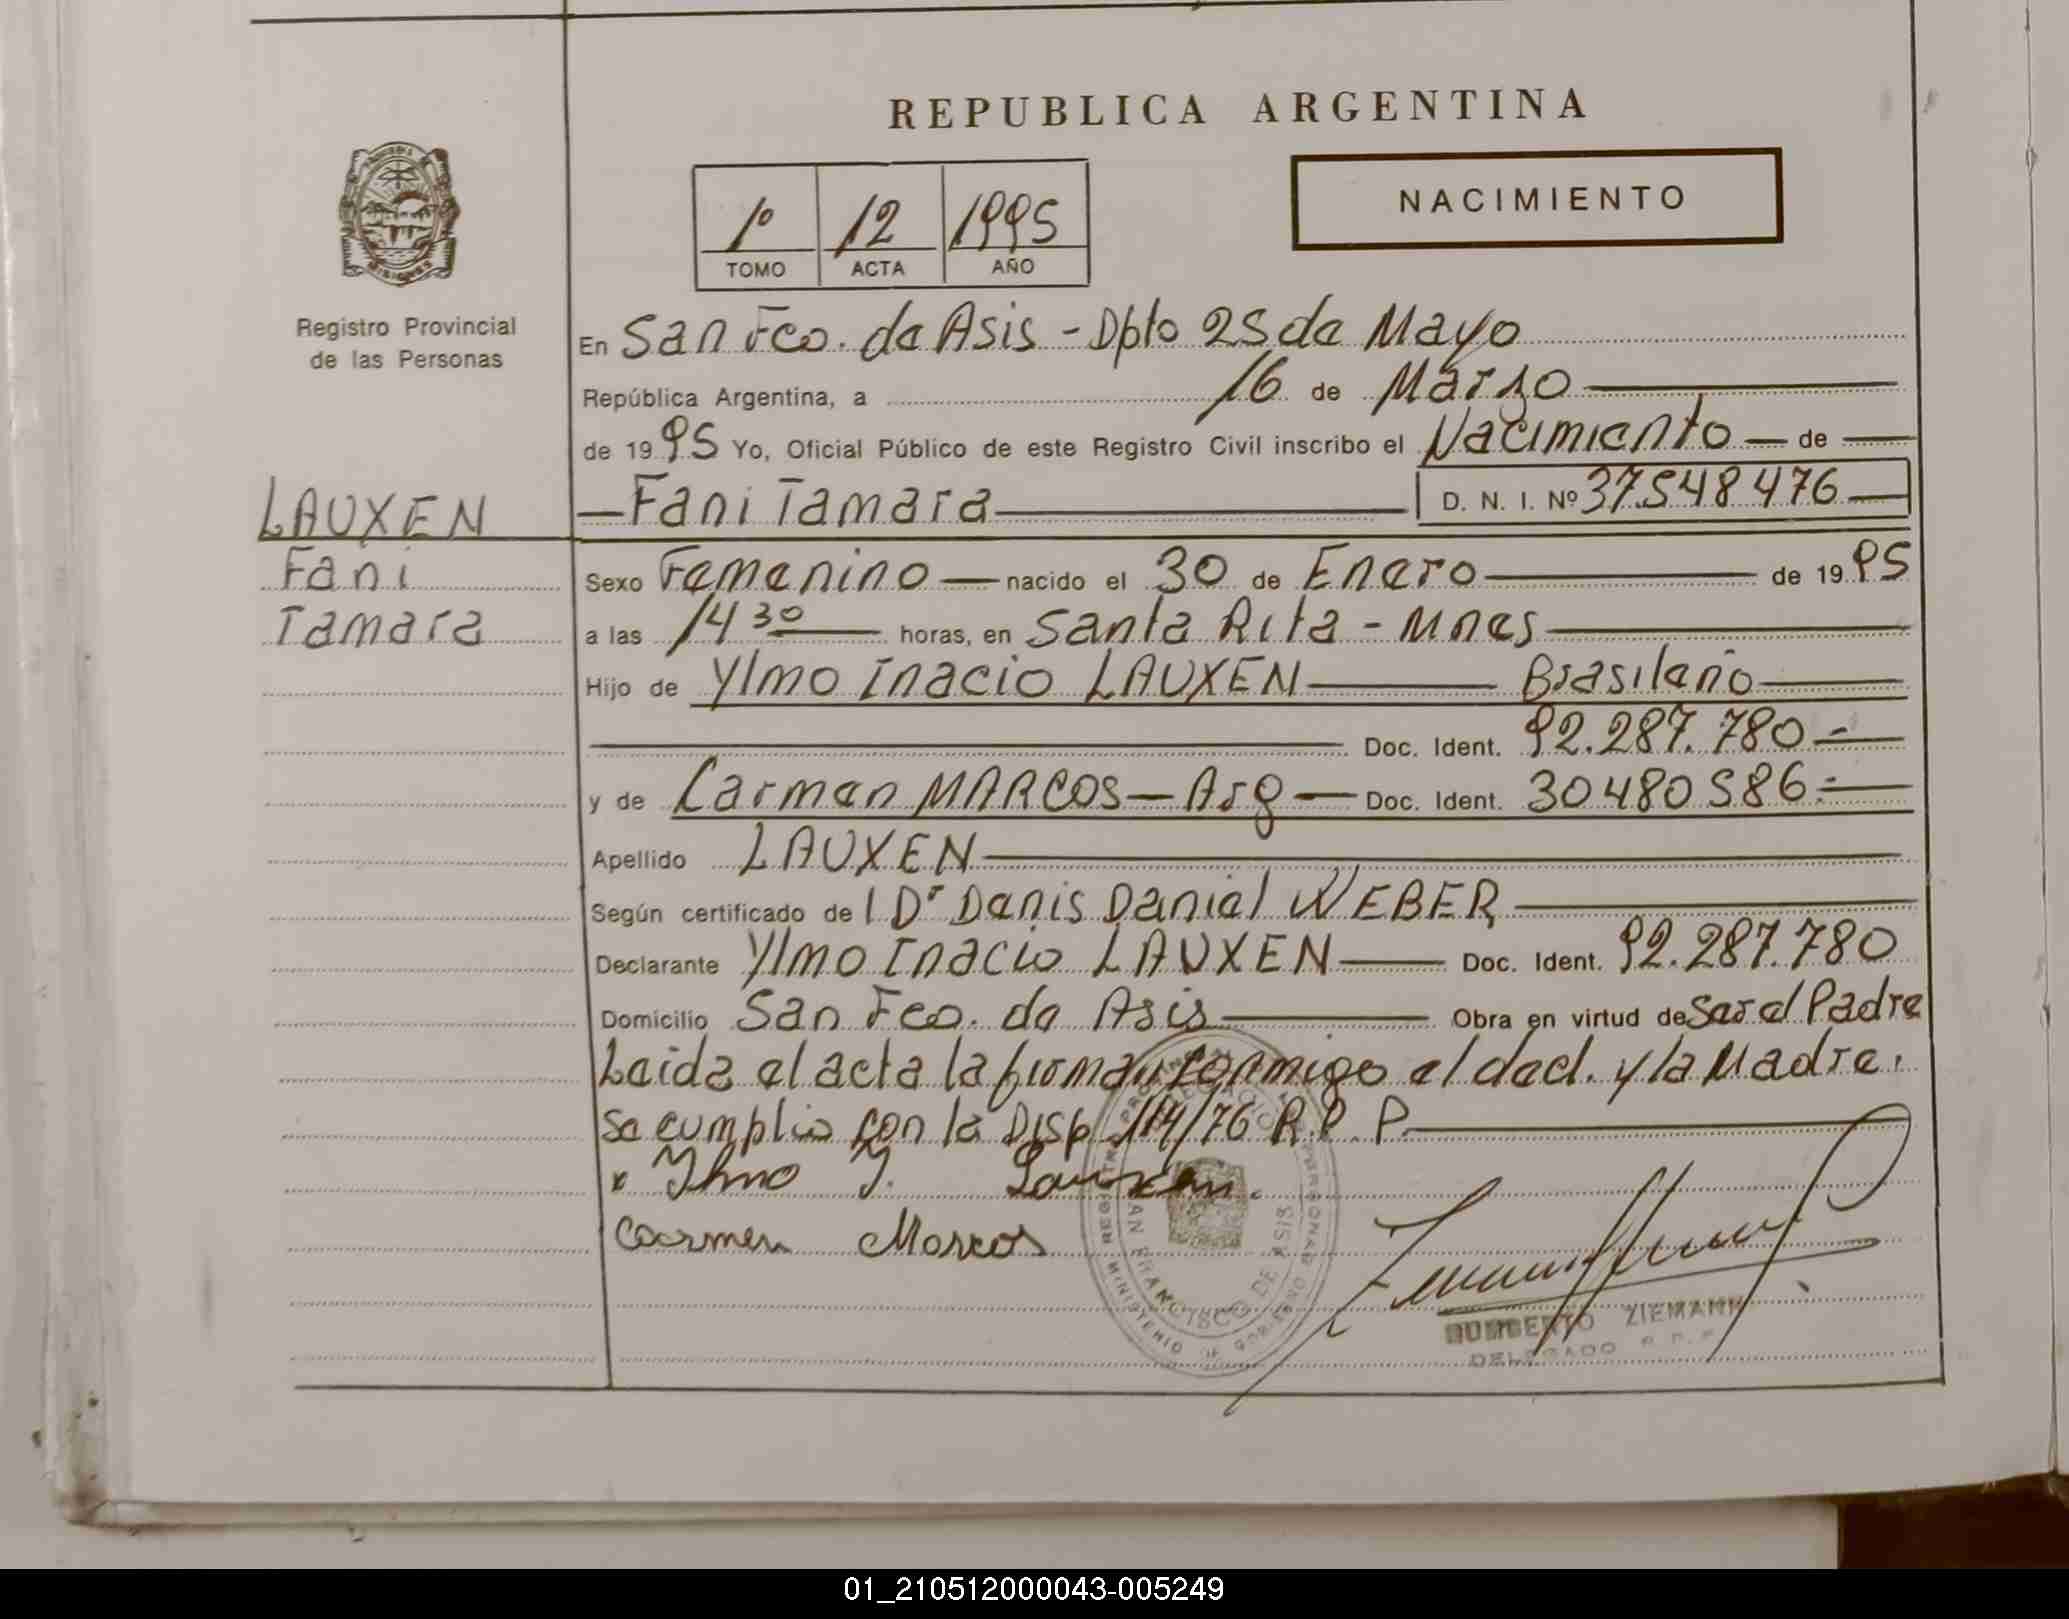 REPUBLICA ARGENTINA
1º 12 1995
TOMO ACTA AÑO
NACIMIENTO
Registro Provincial
de las Personas
LAUXEN
Fani
Tamara
En San Fco. de Asis - Dpto 25 de Mayo
República Argentina, a 16 de Marzo
de 1995 Yo, Oficial Público de este Registro Civil inscribo el Nacimiento de
Fani Tamara D. N. I. Nº 37548476
Sexo Femenino nacido el 30 de Enero de 1995
a las 14 30 horas, en Santa Rita - Mnes
Hijo de Ylmo Inacio LAUXEN Brasileño
Doc. Ident. 92.287.780
y de Carmen MARCOS - Arg - Doc. Ident. 30480586
Apellido LAUXEN
Según certificado de l Dr Denis Daniel WEBER
Declarante Ylmo Inacio LAUXEN Doc. Ident. 92.287.780
Domicilio San Fco. de Asis Obra en virtud de Ser el Padre
Leida el acta la firman conmigo el decl. y la Madre.
Se cumplio con la Disp 114/76 R.P.P.
x Ylmo I. Lauxen.
Carmen Marcos
SAN FRANCISCO DE ASIS
MINISTERIO DE GOBIERNO
ZIEMANN
DELEGADO R.P.P.
01_210512000043-005249